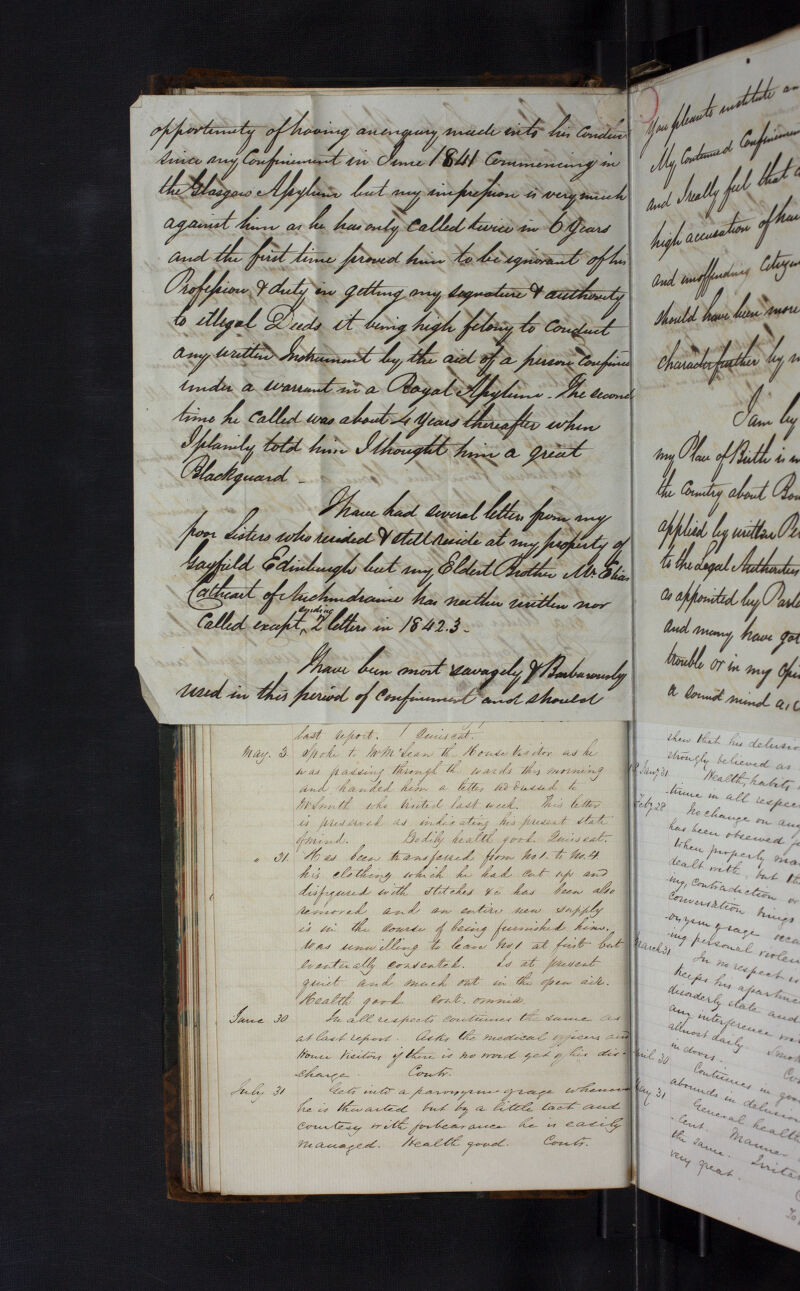 opportunity of having an enquiry made into his Conduct
since my Confinement in June 1841 Commencing in
the Glasgow Asylum but my impression is very much
against him as he has only called twice in 6 Years
and the first time proved him to be ignorant of his
Profession & duty in getting my signature & authority
to illegal Deeds it being high felony to Conduct
any written Instrument by the aid of a person confined
under a warrant in a Royal Asylum. The second
time he called was about 4 Years thereafter when
I plainly told him I thought him a great
Blackguard -
I have had several letters from my
poor Sisters who resided & still reside at my property of
Gayfield Edinburgh but my Eldest Brother Mr Elias
Cathcart of Auchindrainie has neither written nor
called except sending 2 letters in 1842.3 -
I have been most savagely & Barbarously
used in this period of confinement and should
last report. Quiescat.
May. 3 Spoke to Mr McLean the House Visitor as he
was passing through the wards this morning
and handed him a letter addressed to
Mr Smith who visited last week. This letter
is preserved as indicating his present state
of mind. Bodily health good. Quiescat.
" 31. Has been transferred from No 1. to No. 4
his clothing which he had cut up and
disfigured with stitches &c has been also
removed and an entire new supply
is in the course of being furnished him.
Was unwilling to leave No 1 at first but
eventually consented. Is at present
quiet and much out in the open air.
Health good Cont. omnia.
June 30 In all respects continues the same as
at last report. Asks the medical officers and
House Visitors if there is no word yet of his dis-
charge Contr.
July 31 Gets into a paroxysm of rage whenever
he is thwarted but by a little tact and
courtesy with forbearance he is easily
managed. Health good. Contr.
You please to institute an
My Continued Confinement
and I really feel that a
high accusation of
and unoffending Citizen
should have been more
character further by
I am by
my Place of Birth is
the Country about
applied by written
to the Legal Authorities
as appointed by
and many have got
trouble or in my
a sound mind
shew that his
strongly believed as
Jany 31 Health, habits
same in all
Feby 28 No change on any
has been observed
when properly
dealt with, but
contradiction or
conversation brings
of rage
personal
March 31 In no respect is
keeps his
disorderly state and
any interference
almost daily
in doors.
April 30 Continues in good
abounds in
May 31 General health
Manner
the same.
very great.